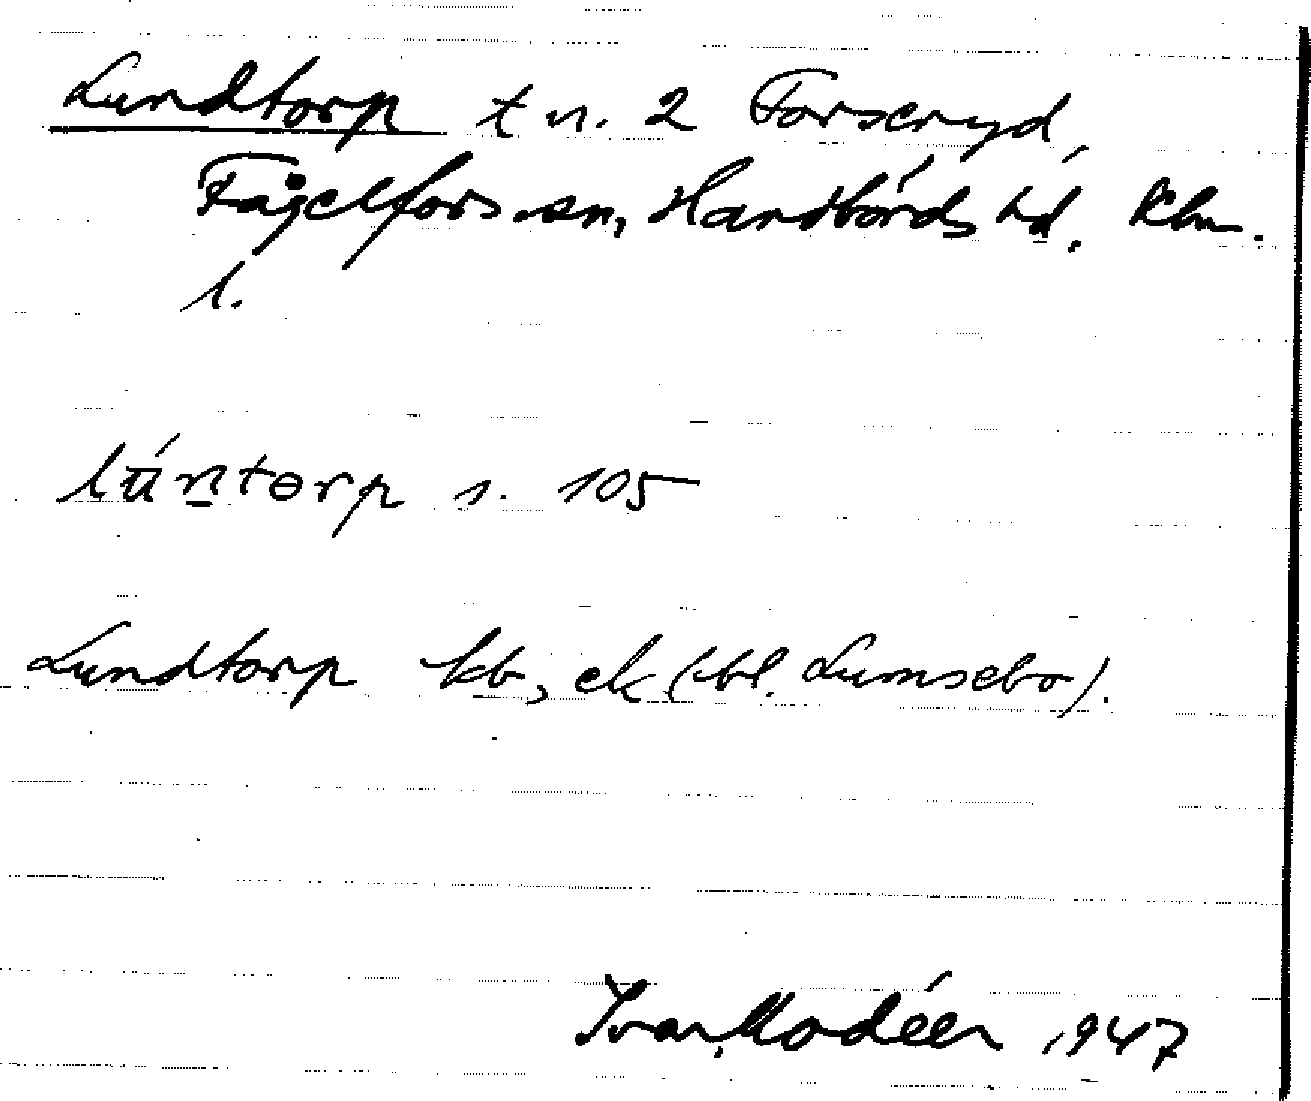 Lundtorp t n. 2 Forseryd,
Fågelfors sn, Handbörds hd. Klm.
l.
lúntɵrp s. 105
Lundtorp kb, ek (bl. Lumsebo).
Ivar Modéer 1947